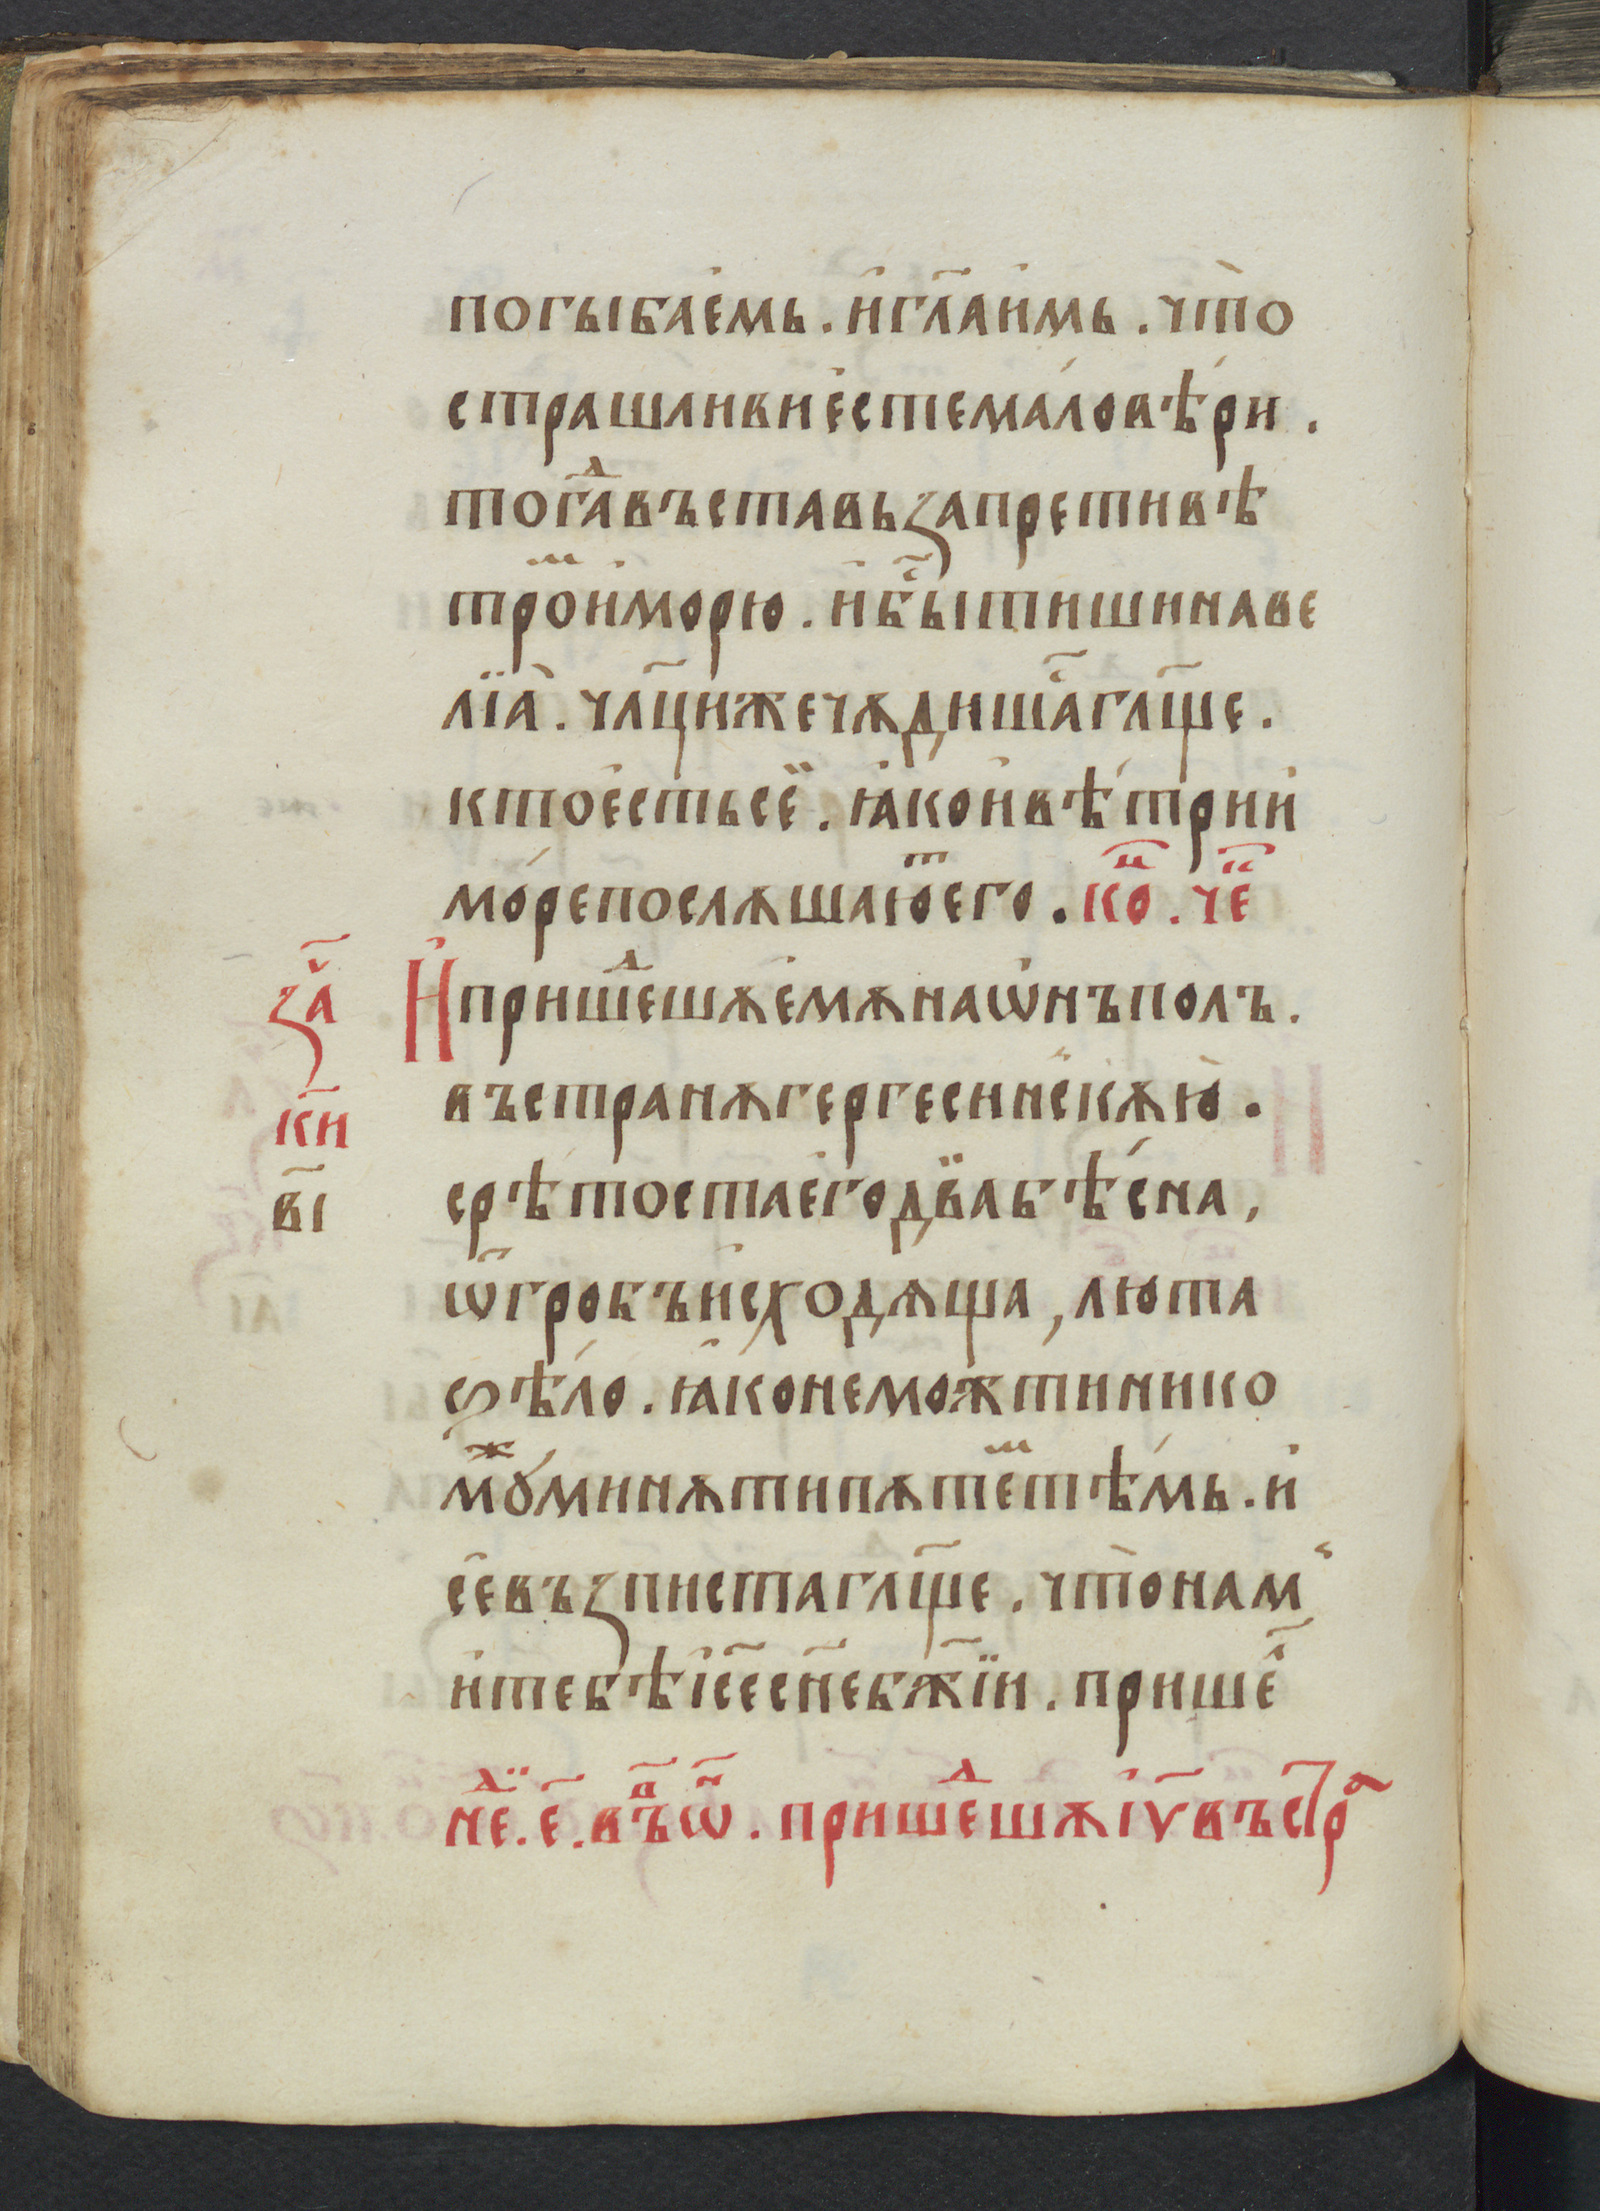 погыбае҆мь. и҆гл҃аи҆мь. что̀
страшливие҆стемало́вѣ́ри.
тогаⷣ въставьꙁапретивѣ
троⷨи҆морю. и҆бⷭ҇ытишинаве
лїа̀. чл҃цижечѧдишаⷭ҇гл҃ще.
ктое҆стьсе̏. ꙗ҆кои҆вѣ́трии҆
мо́репослѫшаюⷮ҇его. коⷰ҇. чеⷮ҇
Ипришеⷣшѫе҆мѫнаѡ҆нъполъ.
ꙁаⷱ҇
въстранѫгергесинскѫю̀.
ки҃
срѣтостае҆годв̏абѣ́сна,
в҃і
ѿгробъи҆сходѧща, люта
ѕѣ́ло. ꙗ҆конемож́тинико
мꙋⷤминѫтипѫтеⷨ тѣ́мь. и҆
се҆въꙁпистагл҃ще. что̀нам
и҆тебѣі҆с҃есн҃ебж҃їи. пришеⷭ҇
неⷣ. е҃. въⷡ҇ѡⷩ҇. пришеⷣшѫі҆ѵ҃въстрⷶ